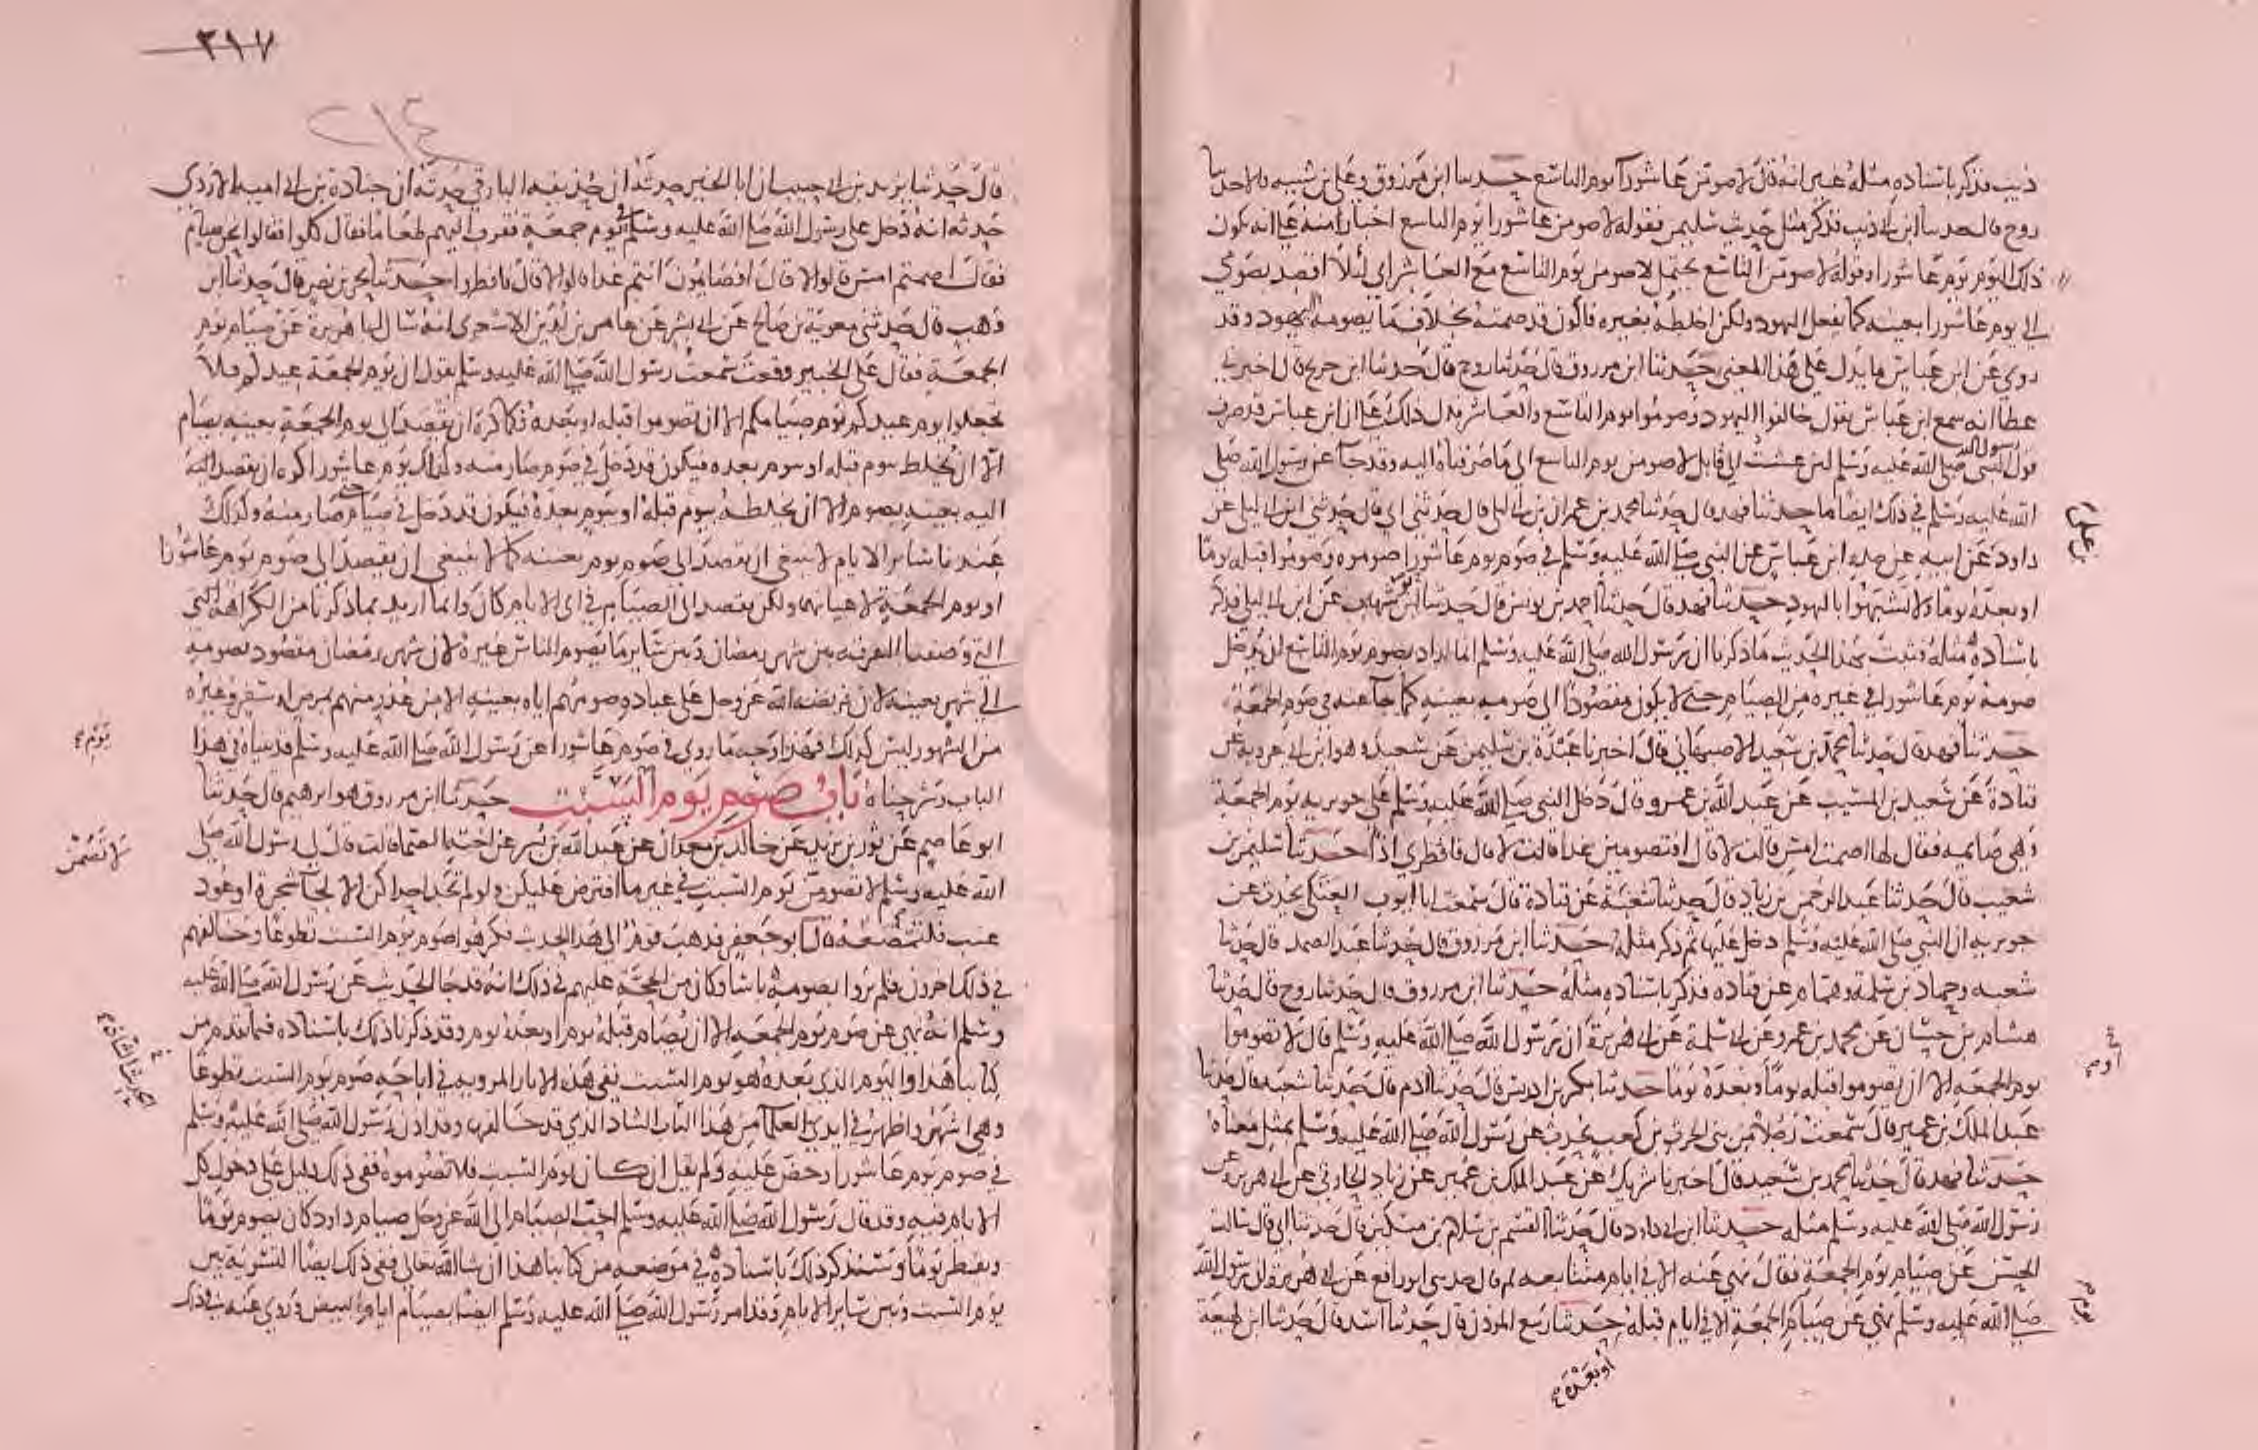 ذيب فذكر باسناده مثله غير انه قال لاصومن عاشورا يوم التاسع حدثنا ابن مرزوق وعلي بن شيبه قالا حدثنا
روح قال حدثنا ابن ابي ذيب فذكر مثل حديث سليمن فقوله لاصومن عاشورا يوم التاسع اخبار منه على انه يكون
ذلك اليوم يوم عاشورا وقوله لاصومن التاسع يحتمل لاصومن يوم التاسع مع العاشر اي لئلا اقصد بصومي
الى يوم عاشورا بعينه كما يفعل اليهود ولكن اخلطه بغيره فاكون قد صمته بخلاف ما يصومه اليهود وقد
روي عن ابن عباس ما يدل على هذا المعنى حدثنا ابن مرزوق قال حدثنا روح قال حدثنا ابن جريج قال اخبرني
عطا انه سمع ابن عباس يقول خالفوا اليهود وصوموا يوم التاسع والعاشر فدل ذلك على ان ابن عباس قد صرف
رسول الله
قول النبي صلى الله عليه وسلم لئن عشت الى قابل لاصومن يوم التاسع الى ما صرفناه اليه وقد جآ عن رسول الله صلى
الله عليه وسلم في ذلك ايضا ما حدثنا فهد قال حدثنا محمد بن عمران بن ابي ليلى قال حدثني ابي قال حدثني ابن ابي ليلى عن
بن علي
داود عن ابيه عن جده ابن عباس عن النبي صلى الله عليه وسلم في صوم يوم عاشورا صوموه وصوموا قبله يوما
او بعده يوما ولا تشبهوا باليهود حدثنا فهد قال حدثنا احمد بن يونس قال حدثنا ابو شهاب عن ابن ابي ليلى فذكر
باسناده مثله فثبت بهذا الحديث ما ذكرنا ان رسول الله صلى الله عليه وسلم انما اراد بصوم يوم التاسع ان يدخل
صومه يوم عاشورا في غيره من الصيام حتى لا يكون مقصودا الى صومه بعينه كما جآ عنه في صوم الجمعة
حدثنا فهد قال حدثنا محمد بن سعيد الاصبهاني قال اخبرنا عبدة بن سليمن عن سعيد هو ابن ابي عروبة عن
قتادة عن سعيد بن المسيب عن عبد الله بن عمرو قال دخل النبي صلى الله عليه وسلم على جويريه يوم الجمعة
وهي صائمه فقال لها اصمت امس قالت لا قال افتصومين غدا قالت لا قال فافطري اذا حدثنا سليمن بن
شعيب قال حدثنا عبد الرحمن بن زياد قال حدثنا شعبة عن قتادة قال سمعت ابا ايوب العتكي يحدث عن
جويريه ان النبي صلى الله عليه وسلم دخل عليها ثم ذكر مثله حدثنا ابن مرزوق قال حدثنا عبد الصمد قال حدثنا
شعبه وحماد بن سلمة وهمام عن قتاده فذكر باسناده مثله حدثنا ابن مرزوق قال حدثنا روح قال حدثنا
هشام بن حسان عن محمد بن عمرو عن ابي سلمة عن ابي هريرة ان رسول الله صلى الله عليه وسلم قال لا تصوموا
يوم الجمعه الا ان تصوموا قبله يوما او بعده يوما حدثنا بكر بن ادريس قال حدثنا ادم قال حدثنا شعبه قال حدثنا
عبد الملك بن عمير قال سمعت رجلا من بني الحرث بن كعب يحدث عن رسول الله صلى الله عليه وسلم بمثل معناه
حدثنا فهد قال حدثنا محمد بن سعيد قال اخبرنا شريك عن عبد الملك بن عمير عن زياد الحارثي عن ابي هريرة عن
رسول الله صلى الله عليه وسلم مثله حدثنا ابن ابي داود قال حدثنا القسم بن سلام بن مسكين قال حدثنا ابي قال سالت
الحسن عن صيام يوم الجمعة فقال نهي عنه الا في ايام متتابعه ثم قال حدثني ابو رافع عن ابي هريرة ان رسول الله
صلى الله عليه وسلم نهى عن صيام الجمعة الا في ايام قبله حدثنا ربيع المؤذن قال حدثنا اسد قال حدثنا ابن لهيعة
يوم
او بعده
٣١٧
٢١٤
قال حدثنا يزيد بن ابي حبيب ان ابا الخير حدثه ان حذيفه البارقي حدثه ان جنادة بن ابي اميه الازدي
حدثه انه دخل على رسول الله صلى الله عليه وسلم في يوم جمعة فقرب اليهم طعاما فقال كلوا فقالوا نحن صيام
فقال اصمتم امس قالوا لا قال افصايمون انتم غدا قالوا لا قال فافطروا حدثنا بحر بن نصر قال حدثنا ابن
وهب قال حدثني معوية بن صالح عن ابي بشر عن عامر بن لدين الاشعري انه سال ابا هريرة عن صيام يوم
الجمعة فقال على الخبير وقعت سمعت رسول الله صلى الله عليه وسلم يقول ان يوم الجمعة عيدكم فلا
تجعلوا يوم عيدكم يوم صيامكم الا ان تصوموا قبله او بعده فكما كره ان يقصد الى يوم الجمعة بعينه بصيام
الا ان يخلط بيوم قبله او بيوم بعده فيكون قد دخل في صوم صار منه وكذلك يوم عاشورا كره ان يقصد اليه
اليه بعينه بصوم الا ان يخلطه بيوم قبله او بيوم بعده فيكون قد دخل في صيام صار منه وكذلك
عندنا ساير الايام لا ينبغي ان يقصد الى صوم يوم بعينه كما لا ينبغي ان يقصد الى صوم يوم عاشورا
او يوم الجمعة لاعيانهما ولكن يقصد الى الصيام في اي الايام كان وانما اريد بما ذكرنا من الكراهة التي
التي وصفنا التفرقه بين شهر رمضان وبين ساير ما يصوم الناس غيره لان شهر رمضان مقصود بصومه
الى شهر بعينه لان فريضه الله عز وجل على عباده صومهم اياه بعينه الا من عذر منهم بمرض او سفر وغيره
من الشهور ليس كذلك فهذا وجه ما روي في صوم عاشورا عن رسول الله صلى الله عليه وسلم قد بيناه في هذا
يوم
الباب وشرحناه باب صوم يوم السبت حدثنا ابن مرزوق هو ابرهيم قال حدثنا
ابو عاصم عن ثور بن يزيد عن خالد بن معدان عن عبد الله بن بسر عن اخته الصما قالت قال لي رسول الله صلى
لا تصمن
الله عليه وسلم لا تصومن يوم السبت في غير ما افترض عليكن ولو لم تجد احداكن الا لحآ شجرة او عود
عنب فلتمضغه قال ابو جعفر فذهب قوم الى هذا الحديث فكرهوا صوم يوم السبت تطوعا وخالفهم
في ذلك اخرون فلم يروا بصومه باسا وكان من الحجة عليهم في ذلك انه قد جا الحديث عن رسول الله صلى الله عليه
وسلم انه نهى عن صوم يوم الجمعه الا ان يصام قبله يوم او بعده يوم وقد ذكرنا ذلك باسناده فيما تقدم من
كتابنا هذا واليوم الذي بعده هو يوم السبت ففي هذه الاثار المرويه في اباحة صوم يوم السبت تطوعا
وهي اشهر واظهر في ايدي العلمآ من هذا الباب الشاذ الذي قد خالفها وقد اذن رسول الله صلى الله عليه وسلم
الحديث الشاذ
في صوم يوم عاشورا وحض عليه ولم يقل ان كان يوم السبت فلا تصوموه ففي ذلك دليل على دخول كل
الايام فيه وقد قال رسول الله صلى الله عليه وسلم احب الصيام الى الله عز وجل صيام داود كان يصوم يوما
ويفطر يوما وسنذكر ذلك باسناده في موضعه من كتابنا هذا ان شا الله تعالى ففي ذلك ايضا التسوية بين
يوم السبت وبين ساير الايام وقد امر رسول الله صلى الله عليه وسلم ايضا بصيام ايام البيض وروي عنه في ذلك